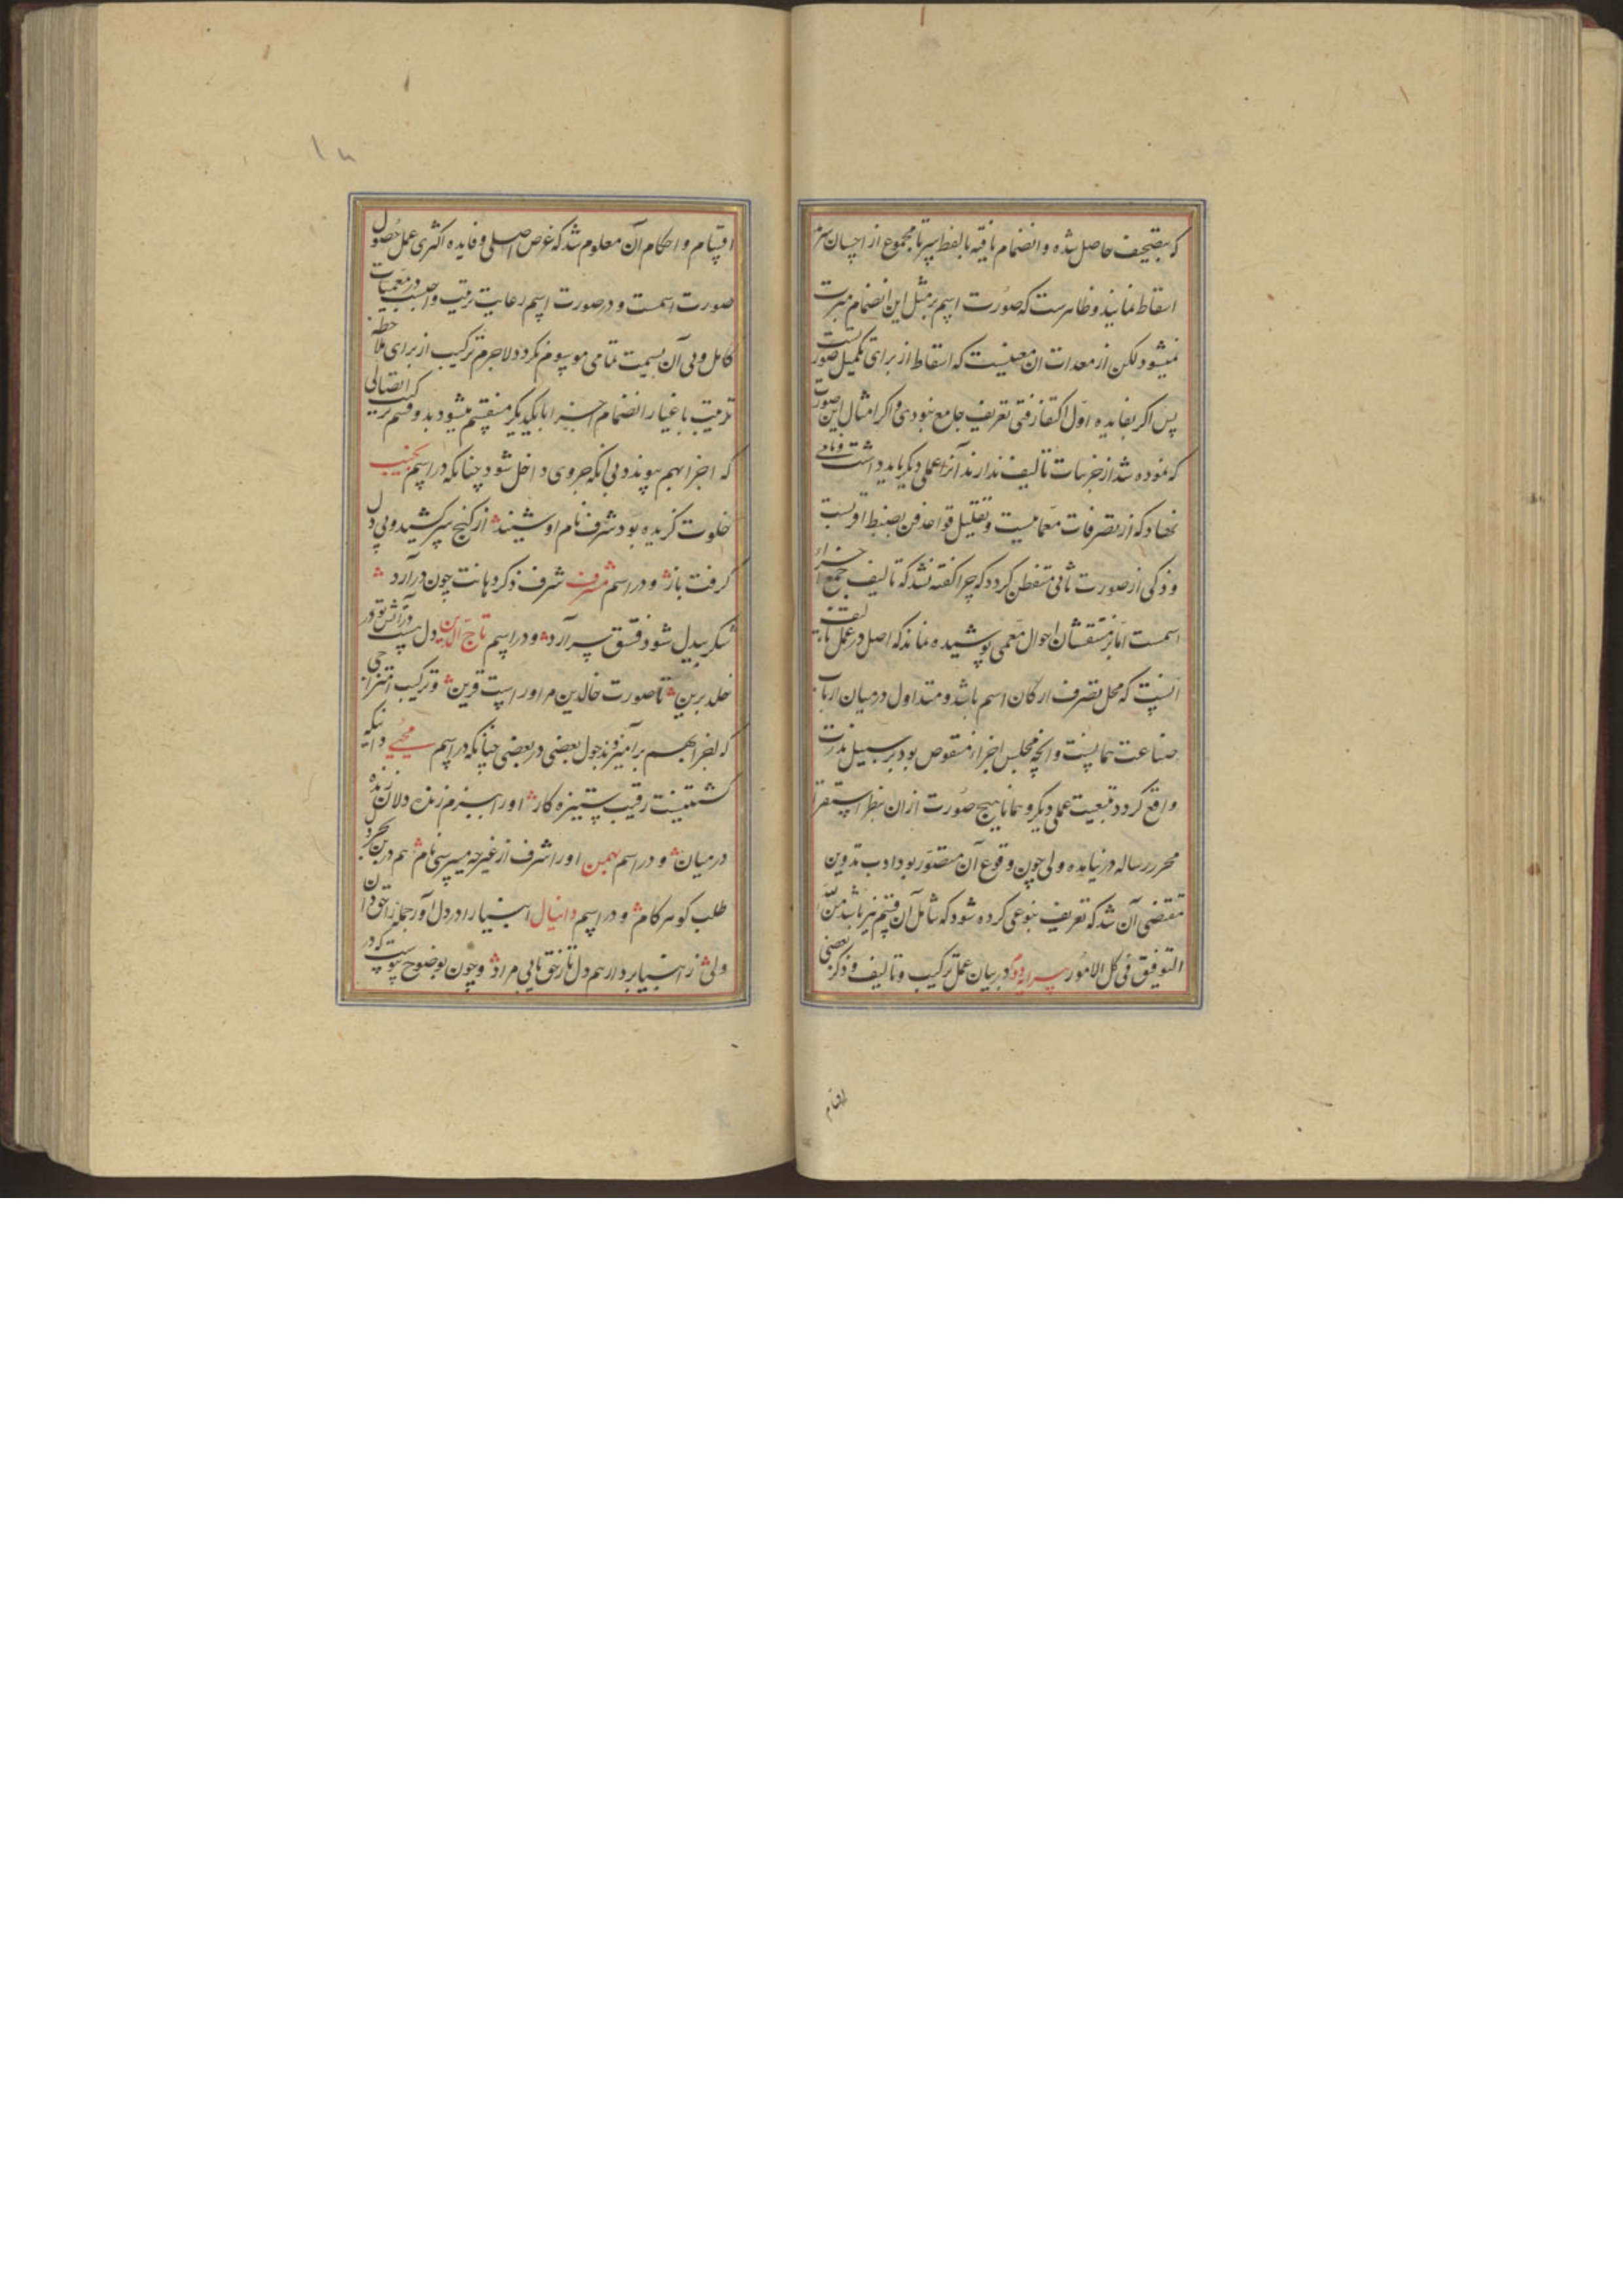 که بتصحیف حاصل شده و انضمام باقیه بالفظ سر تا مجموع از احسان سر
اسقاط نمایند و ظاهرست که صورت اسم بر مثل این انضمام مترتب
نمیشود لکن از معدات ان معنیست که اسقاط از برای تکمیل صورتست
پس اکر بفایده اول اکتفا رفتی تعریف جامع نبودی و اکر امثال این صورت
که نموده شد از جزییات تالیف ندارند آنرا عملی دیکر باید داشت و نامی
نهاد که از تصرفات معماییست و تقلیل قواعد فن بضبط اقربست
و ذکی از صورت ثانی متفطن کردد که چرا کفته نشد که تالیف جمع اجزاء
اسمست اما بر متفتشان احوال معمی پوشیده نماند که اصل در عمل تالیف
انست که محل تصرف ارکان اسم باشد و متداول در میان ارباب
صناعت همانست و انچه مجلس اجزا منقوص بود بر سبیل ندرت
واقع کردد بتبعیت عملی دیکر و همانا هیچ صورت از ان بنظر استقرا
محرر رساله در نیابده ولی چون وقوع آن متصور بود ادب تدوین
مقتضی آن شد که تعریف بنوعی کرده شود که شامل آن قسم نیز باشد من الله
التوفیق فی کل الامور پیرایه دوم در بیان عمل ترکیب و تالیف و ذکر بعضی
اقسام
اقسام و احکام آن معلوم شد که غرض اصلی و فایده اکثری عمل حصول
صورت اسمست و در صورت اسم رعایت ترتیب واجبست در معمیات
کامل و بی آن بسمت تمامی موسوم نکردد لاجرم ترکیب از برای ملاحظه
ترتیب باعتبار انضمام اجزا با یکدیکر منقسم میشود بدو قسم ترکیب اتصالی
که اجزا بهم پیوندد بی آنکه جزوی داخل شود چنانکه در اسم نجیب
خلوت کزیده بود شرف نام او شنید از کنج سر کشید و پی دل
کرفت باز و در اسم شرف شرف ذکر دهانت چون در آرد
شکر بیدل شود فستق سر آرد و در اسم تاج الدین دل سپ در آتش تو در
خلد برین تا صورت خالدین مر اوراست قرین و ترکیب امتزاجی
که اجزا بهم بر آمیزند بدخول بعضی در بعضی چنانکه در اسم محیی دانیکه
کشتنیست رقیب ستیزه کار اورا ببزم زنده دلان زنده
در میان و در اسم بهمن اورا شرف از غیر چه میپرسی نام هم در بن بحر در
طلب کوهر کام و در اسم دانیال انبیا را در دل آور جمله از حق دان
ولی ز انبیا بردار هم دل تا ز حق یابی مراد و چون بوضوح پیوست که در